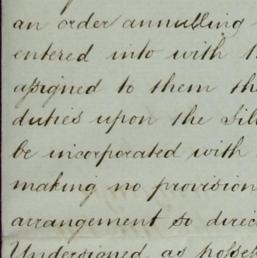 an order annulling
entered into with
assigned to them
duties upon the
be incorporated with
making no provision
arrangement so
Undersigned as